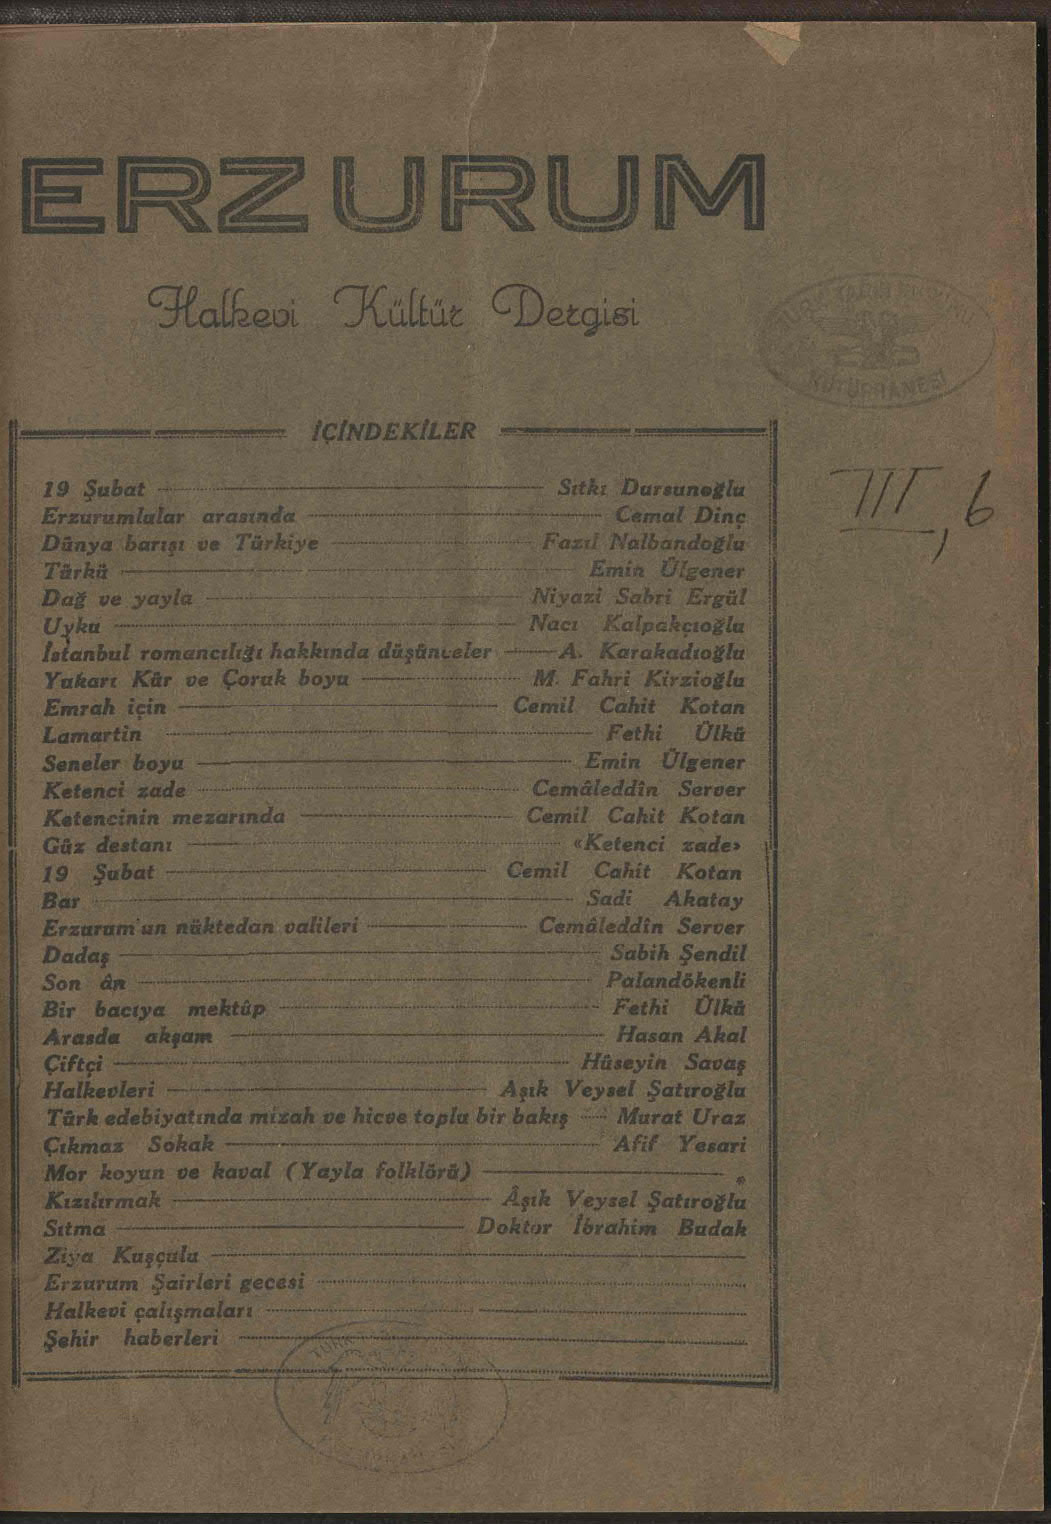 ERZURUM
Halkevi Kültür Dergisi
TÜRK TARİH KURUMU
KÜTÜPHANESİ
III, 6
İÇİNDEKİLER
19 Şubat Sıtkı Dursunoğlu
Erzurumlular arasında Cemal Dinç
Dünya barışı ve Türkiye Fazıl Nalbandoğlu
Türkü Emin Ülgener
Dağ ve yayla Niyazi Sabri Ergül
Uyku Nacı Kalpakçıoğlu
İstanbul romancılığı hakkında düşünceler A. Karakadıoğlu
Yukarı Kür ve Çoruk boyu M. Fahri Kirzioğlu
Emrah için Cemil Cahit Kotan
Lamartin Fethi Ülkü
Seneler boyu Emin Ülgener
Ketenci zade Cemâleddîn Server
Ketencinin mezarında Cemil Cahit Kotan
Güz destanı «Ketenci zade»
19 Şubat Cemil Cahit Kotan
Bar Sadi Akatay
Erzurum'un nüktedan valileri Cemâleddîn Server
Dadaş Sabih Şendil
Son ân Palandökenli
Bir bacıya mektûp Fethi Ülkü
Arasda akşam Hasan Akal
Çiftçi Hüseyin Savaş
Halkevleri Aşık Veysel Şatıroğlu
Türk edebiyatında mizah ve hicve toplu bir bakış Murat Uraz
Çıkmaz Sokak Afif Yesari
Mor koyun ve kaval (Yayla folklörü) *
Kızılırmak Âşık Veysel Şatıroğlu
Sıtma Doktor İbrahim Budak
Ziya Kuşçulu
Erzurum Şairleri gecesi
Halkevi çalışmaları
Şehir haberleri